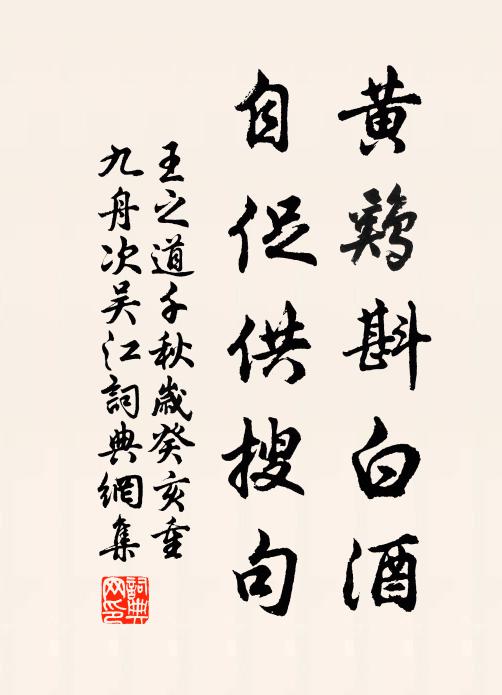 黄鷄斟白酒
自促供搜句
王之道千秋歲癸亥重
九舟次吴江詞典網集
詞典網印